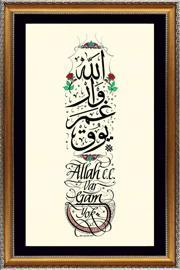 الله
وار
غم
يوق
Allah c.c.
Var
Gam
Yok